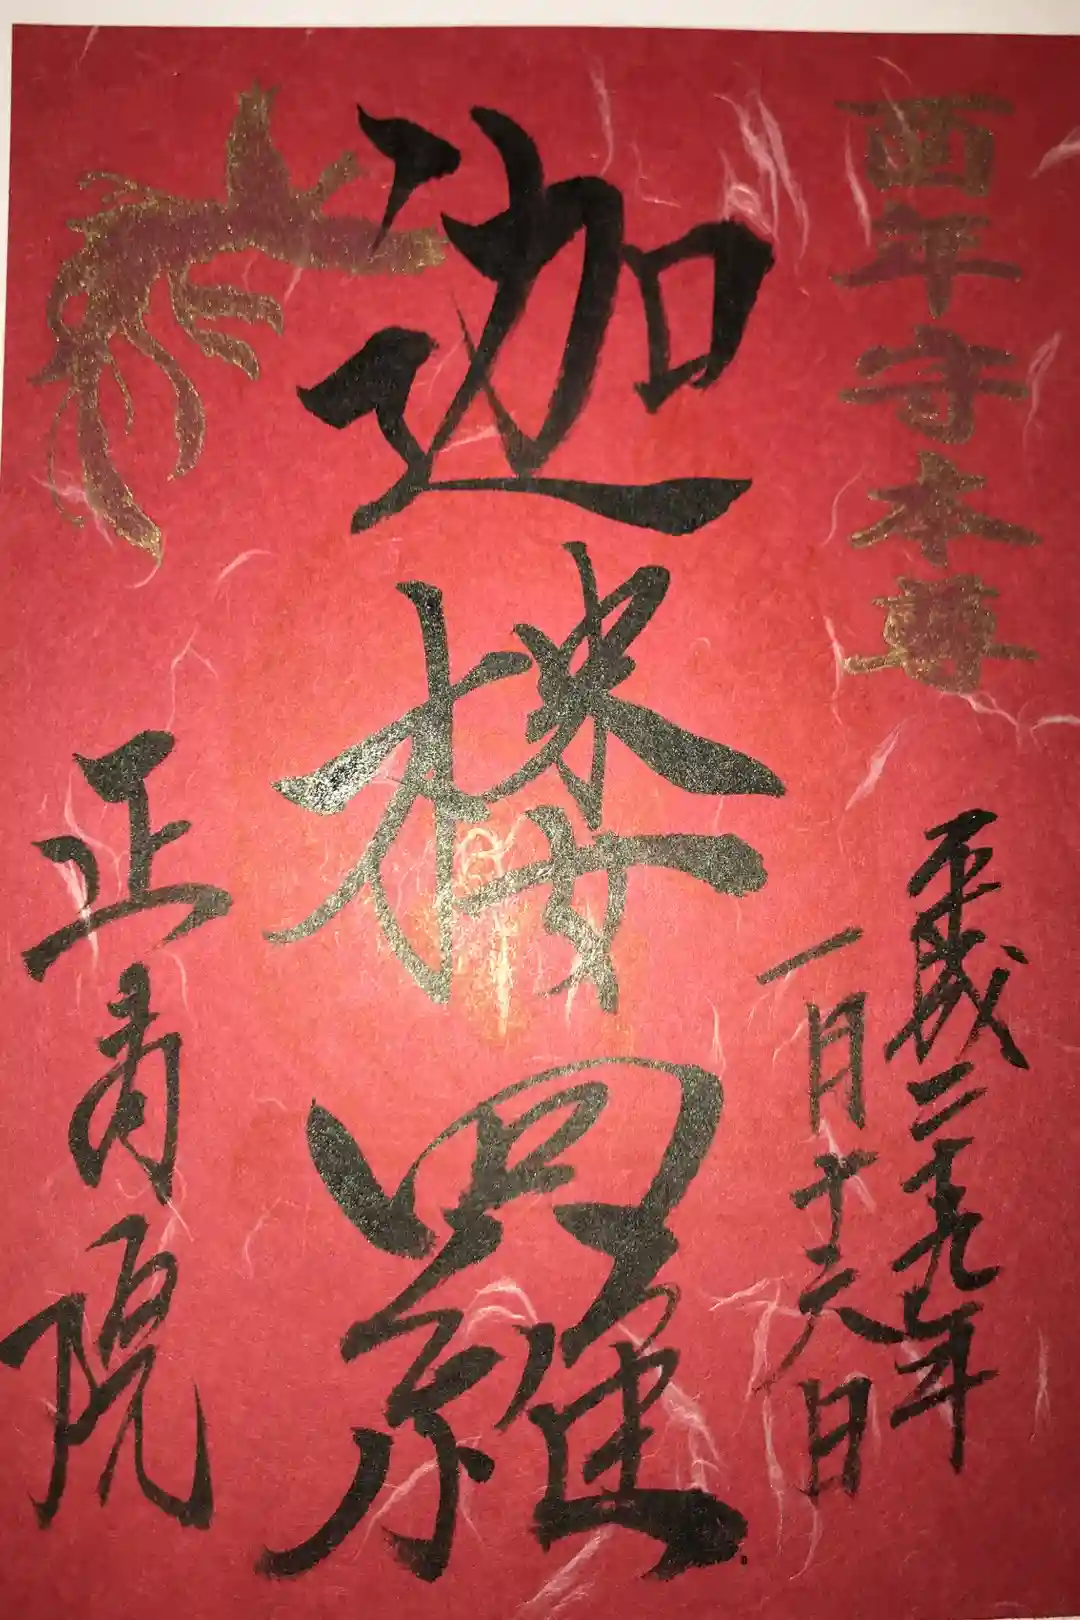 酉年守本尊
平成二十九年
一月十六日
迦楼羅
正寿院